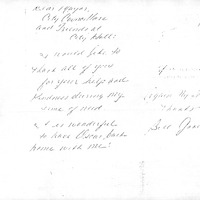 Dear Mayor,
City Councillors
and Friends at
City Hall:
I would like to
thank all of you
for your help and
kindness during my
time of need
It is wonderful
to have Oscar back
home with me!
again
Bill